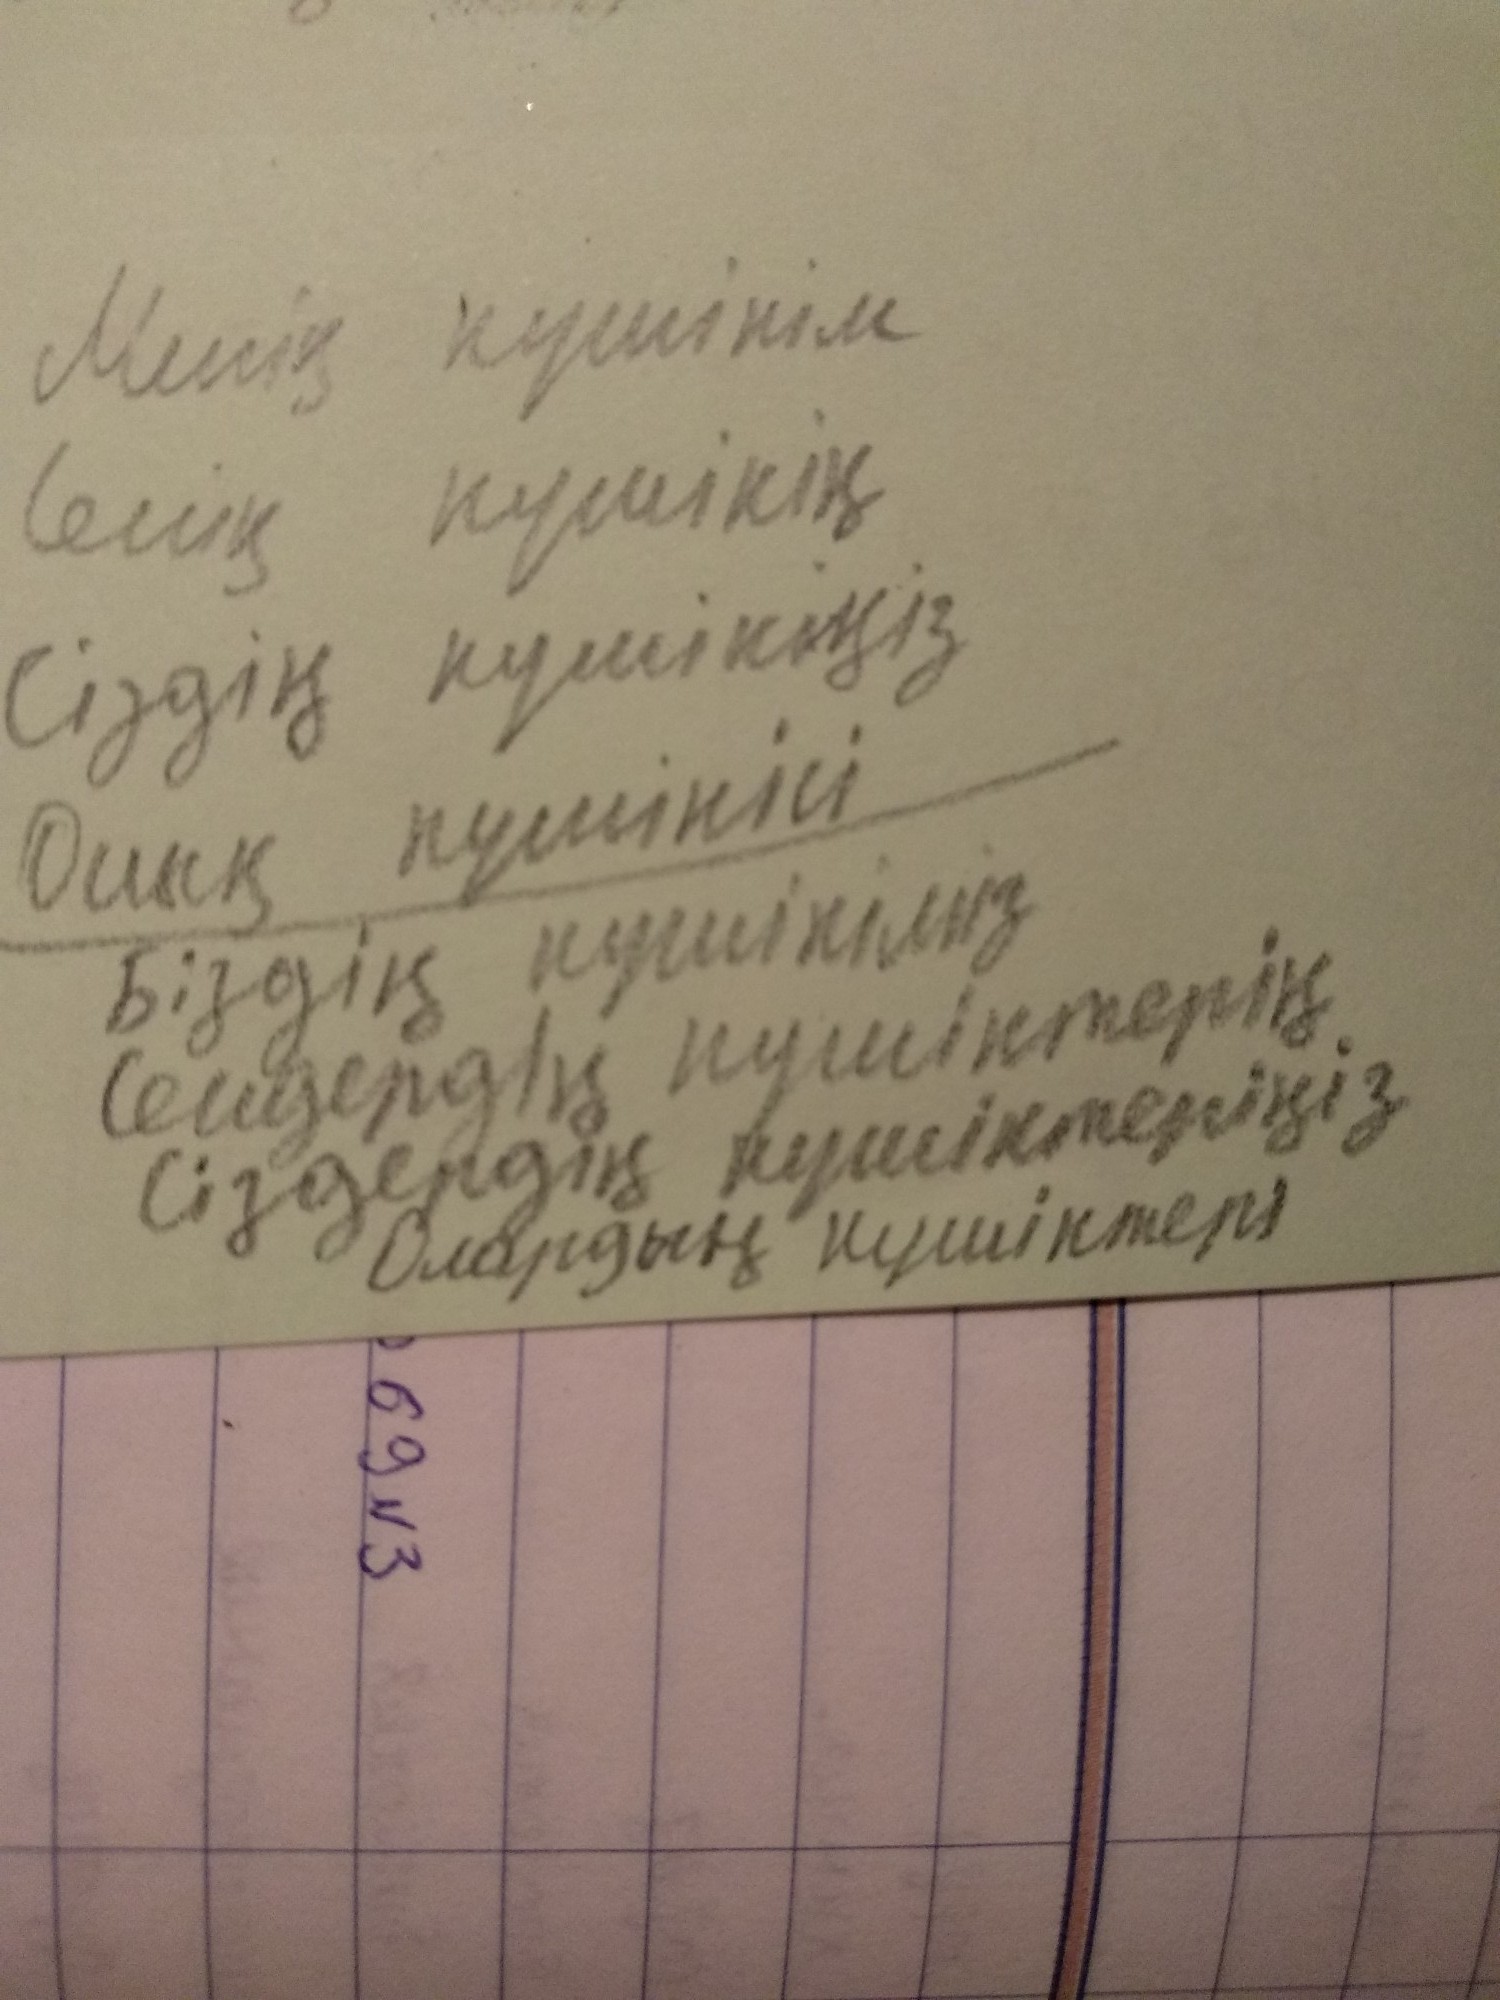 Менің күшікім
Сенің күшікің
Сіздің күшікіңіз
Оның күшікісі
Біздің күшікіміз
Сендердің күшіктерің
Сіздердің күшіктеріңіз
Олардың күшіктері